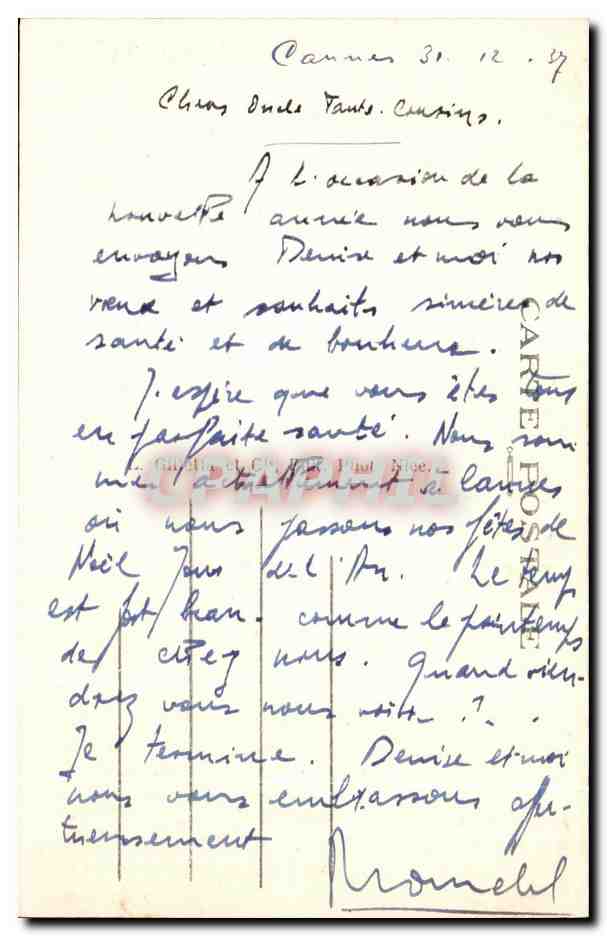 Cannes 31. 12. 37
Chers Oncle Tante. Cousins.
A l'occasion de la
nouvelle année nous vous
envoyons Denise et moi nos
vœux et souhaits sincères de
santé et de bonheur.
J'espère que vous êtes tous
en parfaite santé. Nous som
mes actuellement à Cannes
où nous passons nos fêtes de
Noël Jour de l'An. Le temps
est fort beau. comme le printemps
de chez nous. Quand vien-
drez vous nous voir ?
Je termine. Denise et moi
nous vous embrassons affec-
tueusement
CARTE POSTALE
Giletta et Cie, Phot. Nice.
CPAPHIL